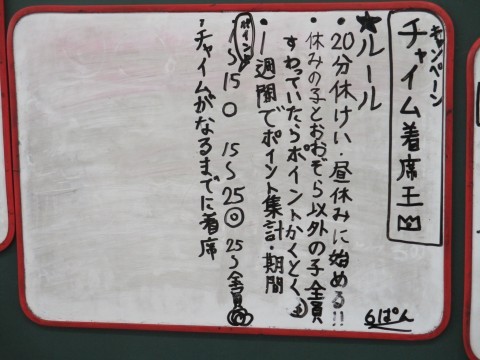 キャンペーン
チャイム着席王
★ルール
・20分休けい・昼休みに始める!!
・休みの子とおおぞら以外の子全員
すわっていたらポイントかくとく。
・1週間でポイント集計・期間
ポイント
1〜15○ 15〜25◎ 25〜全員
・チャイムがなるまでに着席
6ぱん